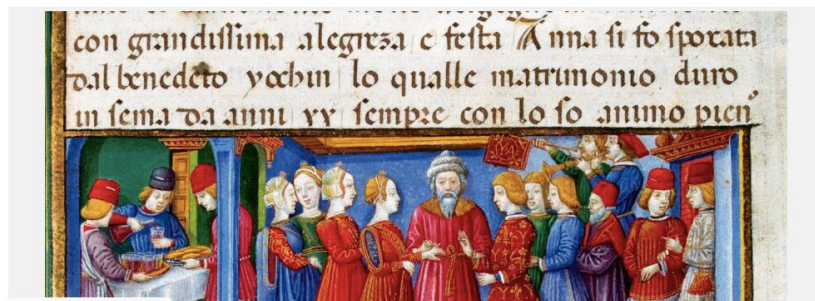 con grandissima alegreza e festa Anna si fo sposata
dal benedeto yochin lo qualle matrimonio duro
in sema da anni xx sempre con lo so animo pien